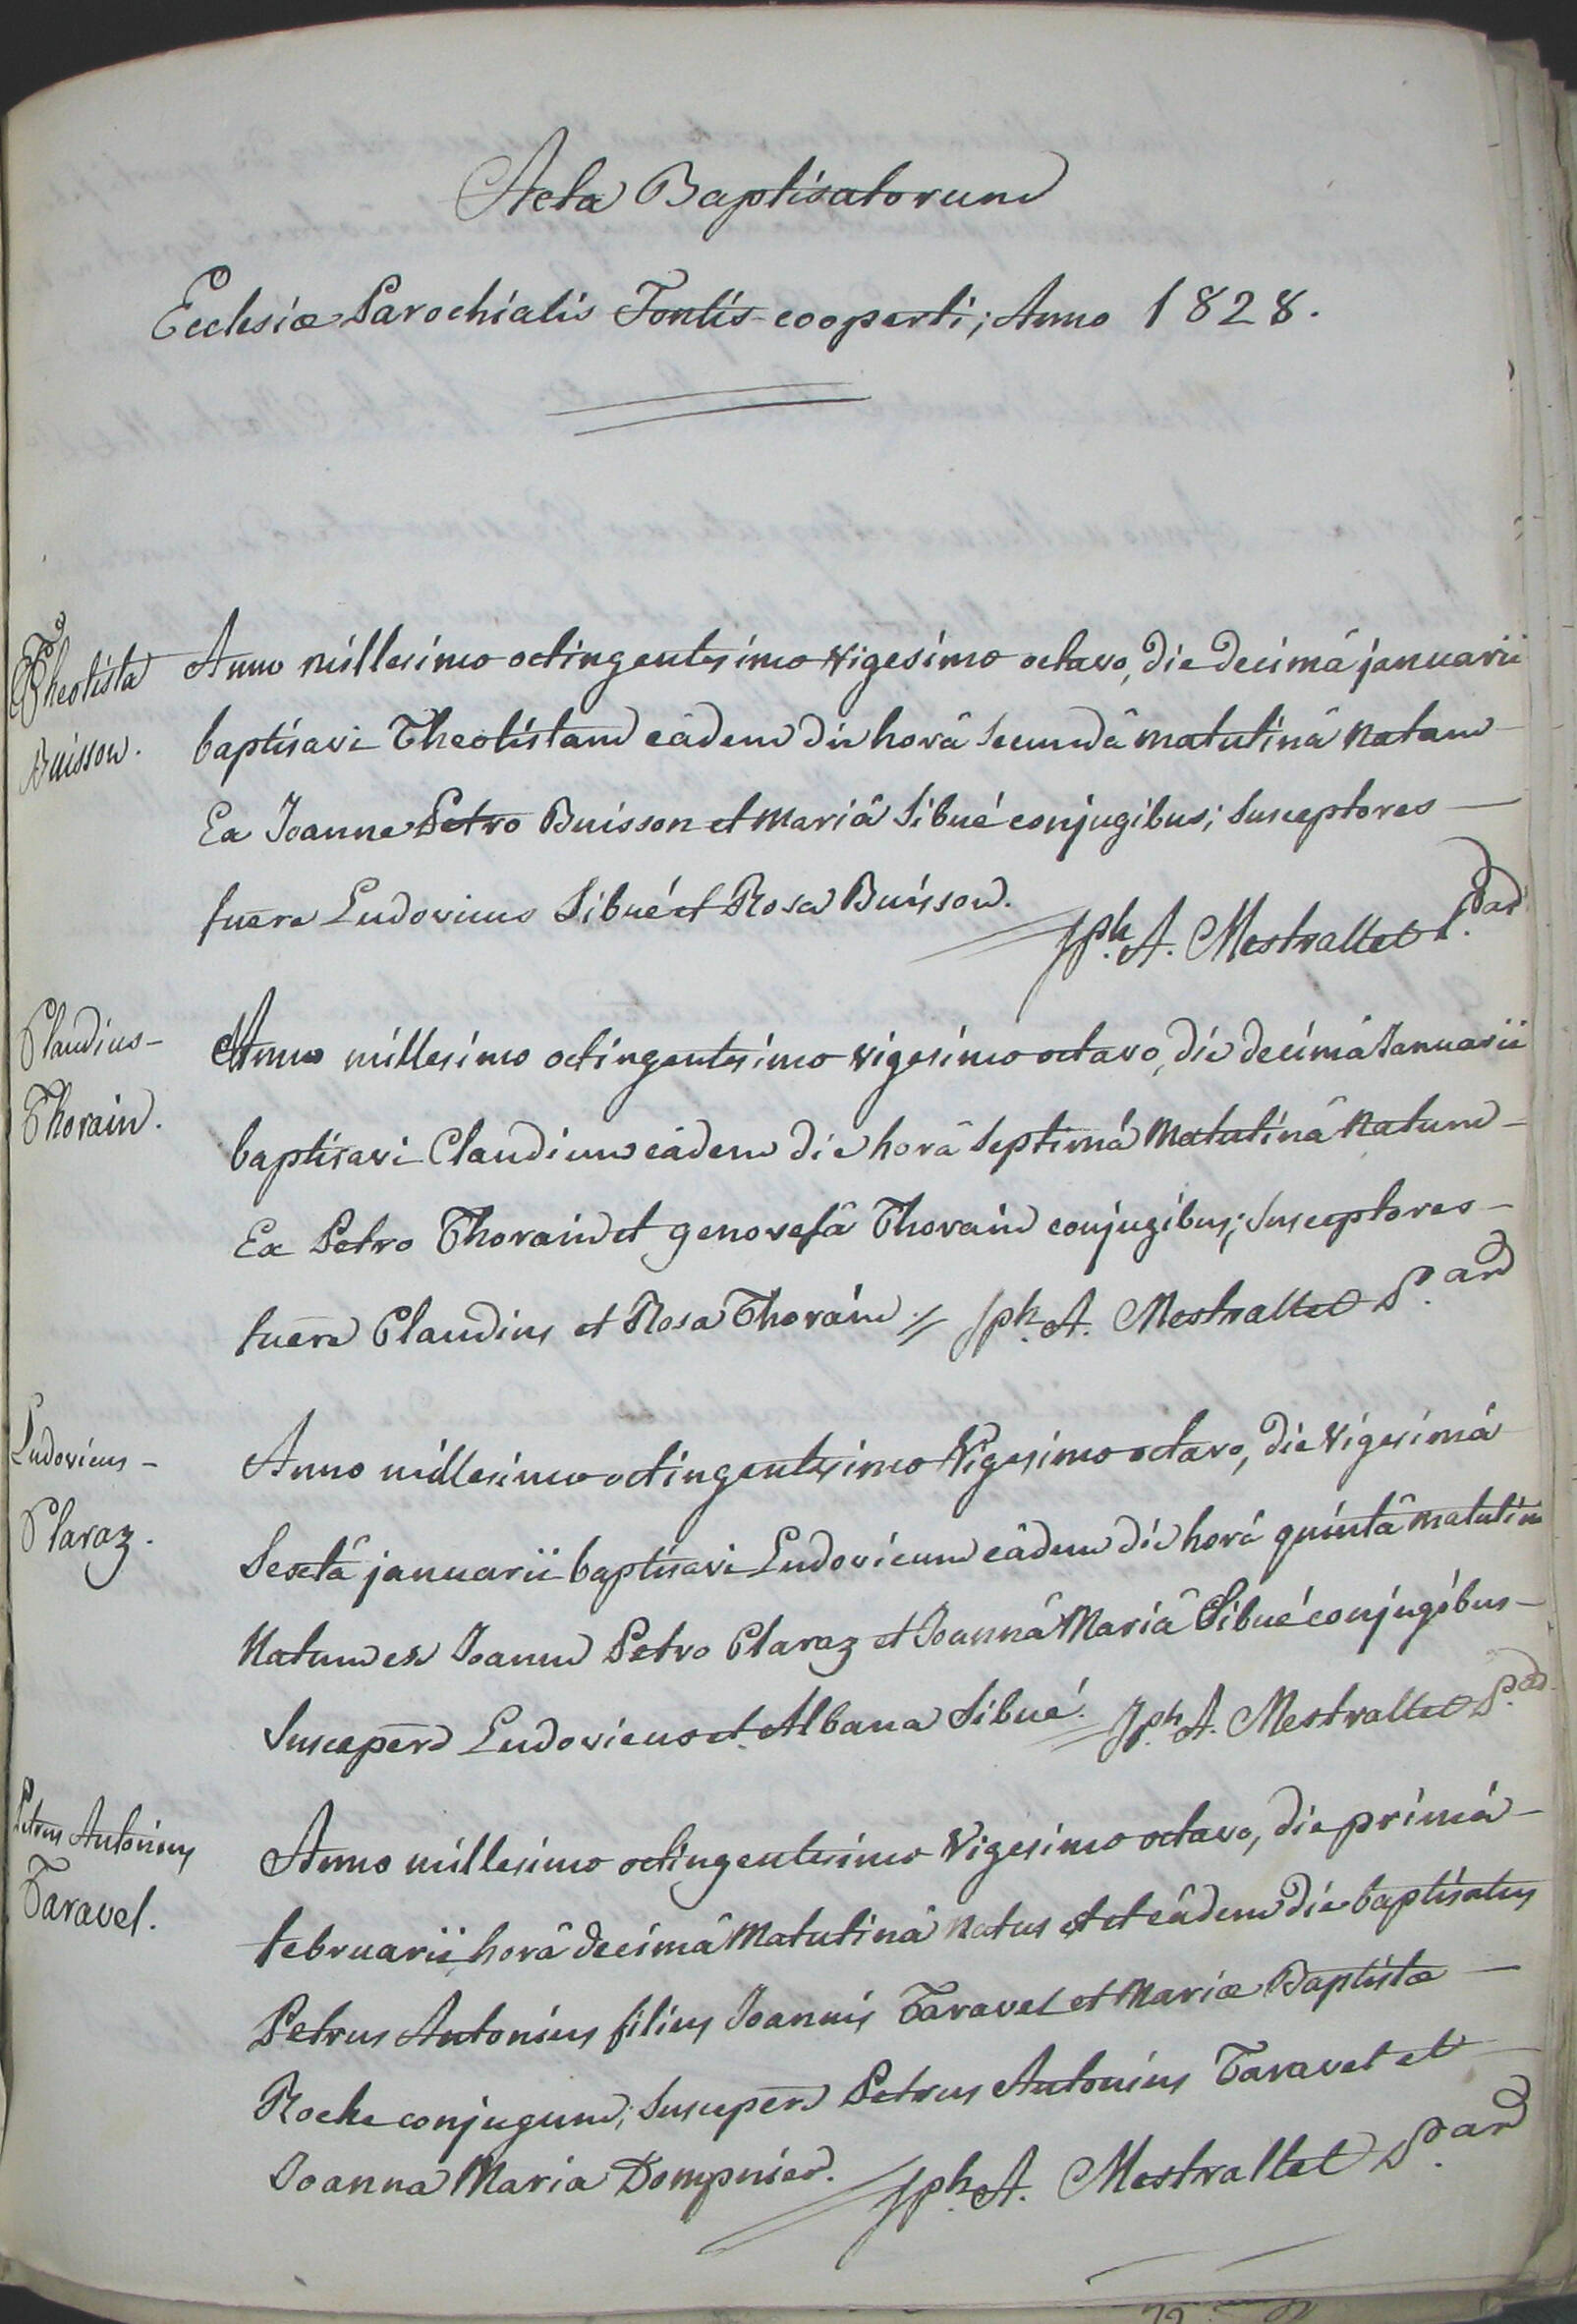 Acta Baptisatorum
Ecclesiæ Parochialis Fontis-cooperti; Anno 1828.
Theotista
Buisson.
Anno millesimo octingentesimo vigesimo octavo, die decimâ januarii
baptisavi Theotistam eâdem die horâ secundâ matutinâ natam
Ex Joanne Petro Buisson et Mariâ Sibué conjugibus; Susceptores
fuere Ludovicus Sibué et Rosa Buisson.
Jph. A. Mestrallet P.
Claudius-
Thorain.
Anno millesimo octingentesimo vigesimo octavo, die decimâ Januarii
baptisavi Claudium eâdem die horâ septimâ Matutinâ natum
Ex Petro Thorain et genovefâ Thorain conjugibus; Susceptores
fuere Claudius et Rosa Thorain. Jph. A. Mestrallet P.
Ludovicus-
Claraz.
Anno millesimo octingentesimo Vigesimo octavo, die vigesimâ
Sextâ januarii baptisavi Ludovicum eâdem die horâ quintâ matutinâ
Natum ex Joanne Petro Claraz et Joannâ Mariâ Sibué conjugibus
Suscepere Ludovicus et Albana Sibué. Jph. A. Mestrallet P.
Petrus Antonius
Taravel.
Anno millesimo octingentesimo Vigesimo octavo, die primâ
februarii, horâ decimâ Matutinâ natus est et eâdem die baptisatus
Petrus Antonius filius Joannis Taravel et Mariæ Baptistæ
Roche conjugum; Suscepere Petrus Antonius Taravel et
Joanna Maria Dompnier. Jph. A. Mestrallet P.